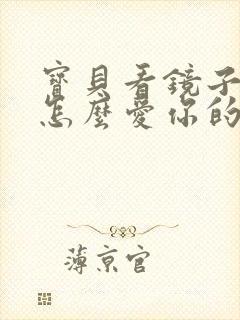 寶貝看鏡子
怎麼愛你的
薄京官